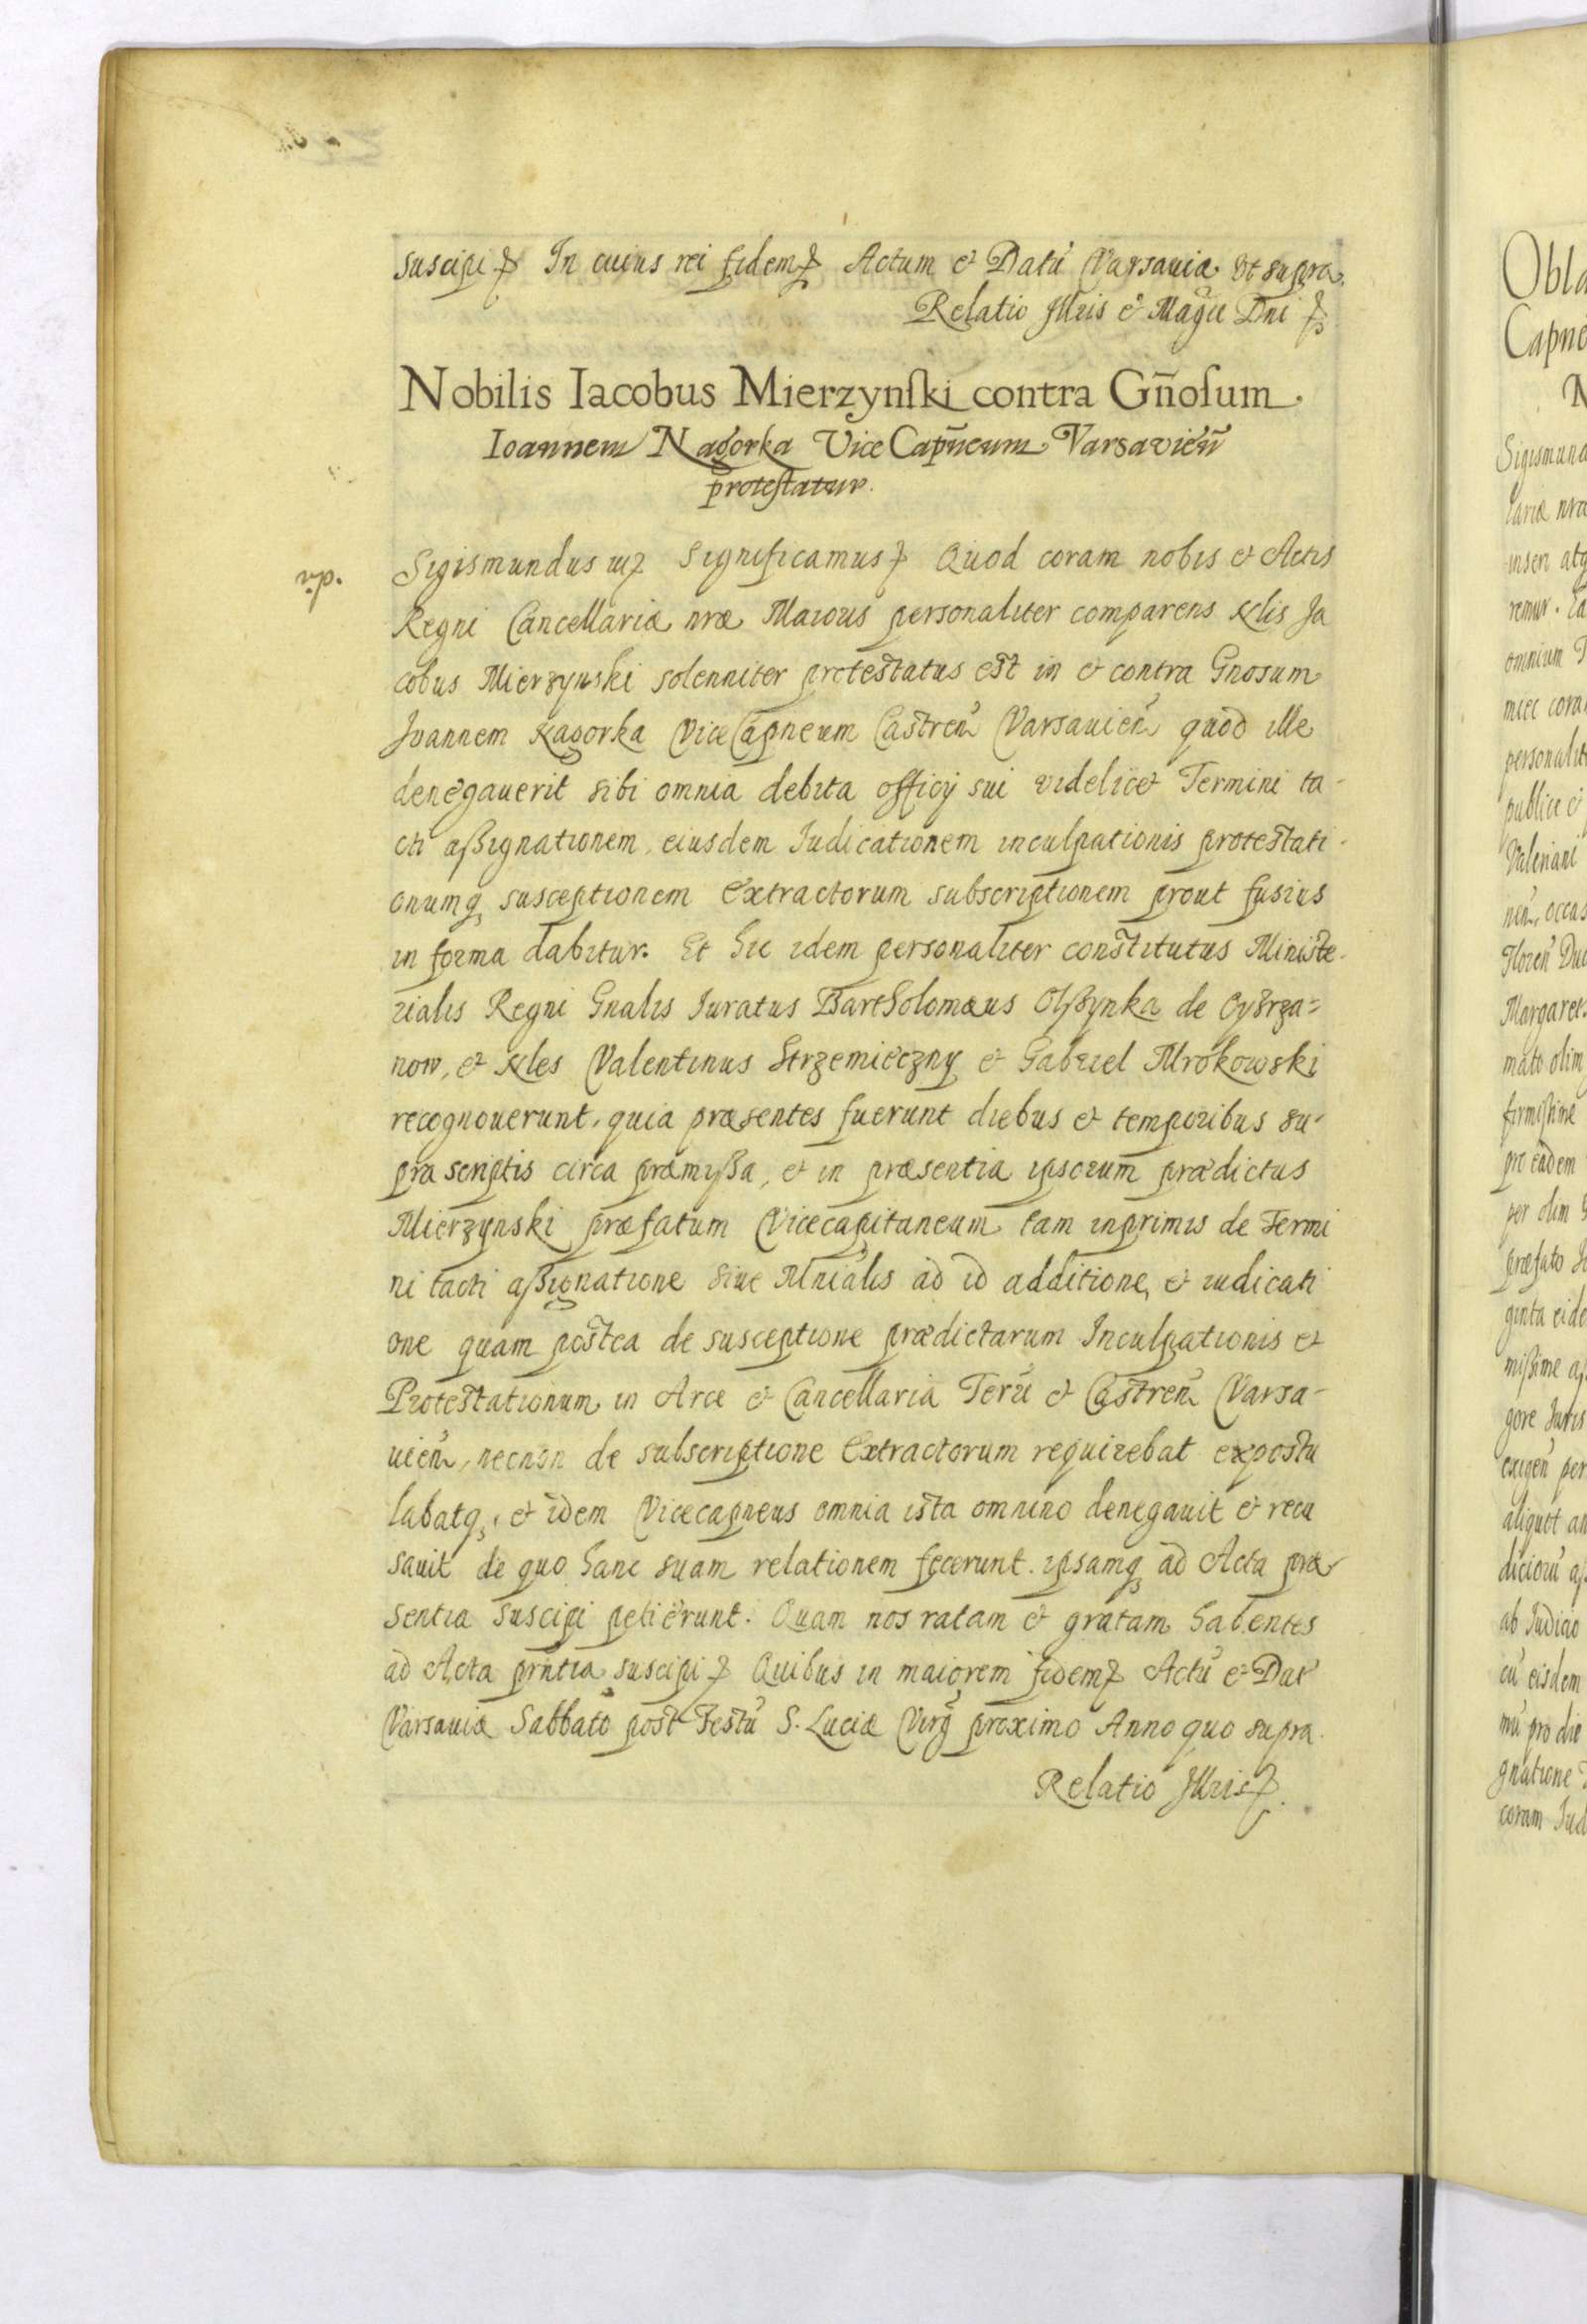 suscipi In cuius rei fidem Actum et Datũ Varsauiæ Vt supra.
Relatio Illris et Magci Dni
Nobilis Iacobus Mierzynſki contra Gn̄oſum
Ioannem Nagorka Vice Cap̄neum Varsavień
proteſtatur.
np.
Sigismundus iij Significamus Quod coram nobis et Actis
Regni Cancellariæ nræ Maioris personaliter comparens Nlis Ja
cobus Mierzynski solenniter protestatus est in et contra Gnosum
Joannem Nagorka Vice Capneum Castreń Varsauień quod ille
denegauerit sibi omnia debita officij sui videlicet Termini ta-
cti aßignationem, eiusdem Iudicationem inculpationis protestati-
onumq susceptionem Extractorum subscriptionem prout fusius
in forma dabitur. Et hic idem personaliter constitutus Ministe-
rialis Regni Gnalis Iuratus Bartholomæus Olßynka de Cyrza=
now, et Nles Valentinus Strzemieczny et Gabriel Mrokowski
recognouerunt, quia præsentes fuerunt diebus et temporibus su-
pra scriptis circa præmißa, et in præsentia ipsorum prædictus
Mierzynski præfatum Vicecapitaneum tam inprimis de Termi
ni tacti aßignatione siue Mnialis ad id additione, et iudicati
one quam postea de susceptione prædictarum Inculpationis et
Protestationum in Arce et Cancellaria Terri et Castreń Varsa-
uień, necnon de subscriptione Extractorum requirebat expostu
labatq, et idem Vicecapneus omnia ista omnino denegauit et recu
sauit de quo hanc suam relationem fecerunt. ipsamq ad Acta præ
sentia suscipi petierunt. Quam nos ratam et gratam habentes
ad Acta prntia suscipi Quibus in maiorem fidem Actũ et Dat
Varsauiæ Sabbato post Festũ S. Luciæ Virg proximo Anno quo supra.
Relatio Illris
Obla
Capne
N
Sigismund
lariæ nræ
inseri atq
remur. Ta
omnium
miec cora
personalit
publice e
Valeriani
nen, occas
Floren Du
Margaret
mato olim
firmißime
pro eadem
per olim
præfato
ginta eide
mißime
gore Juris
exigen per
aliquot an
ab Iudicio
cũ eisdem
mũ pro die
gnatione
coram Iud